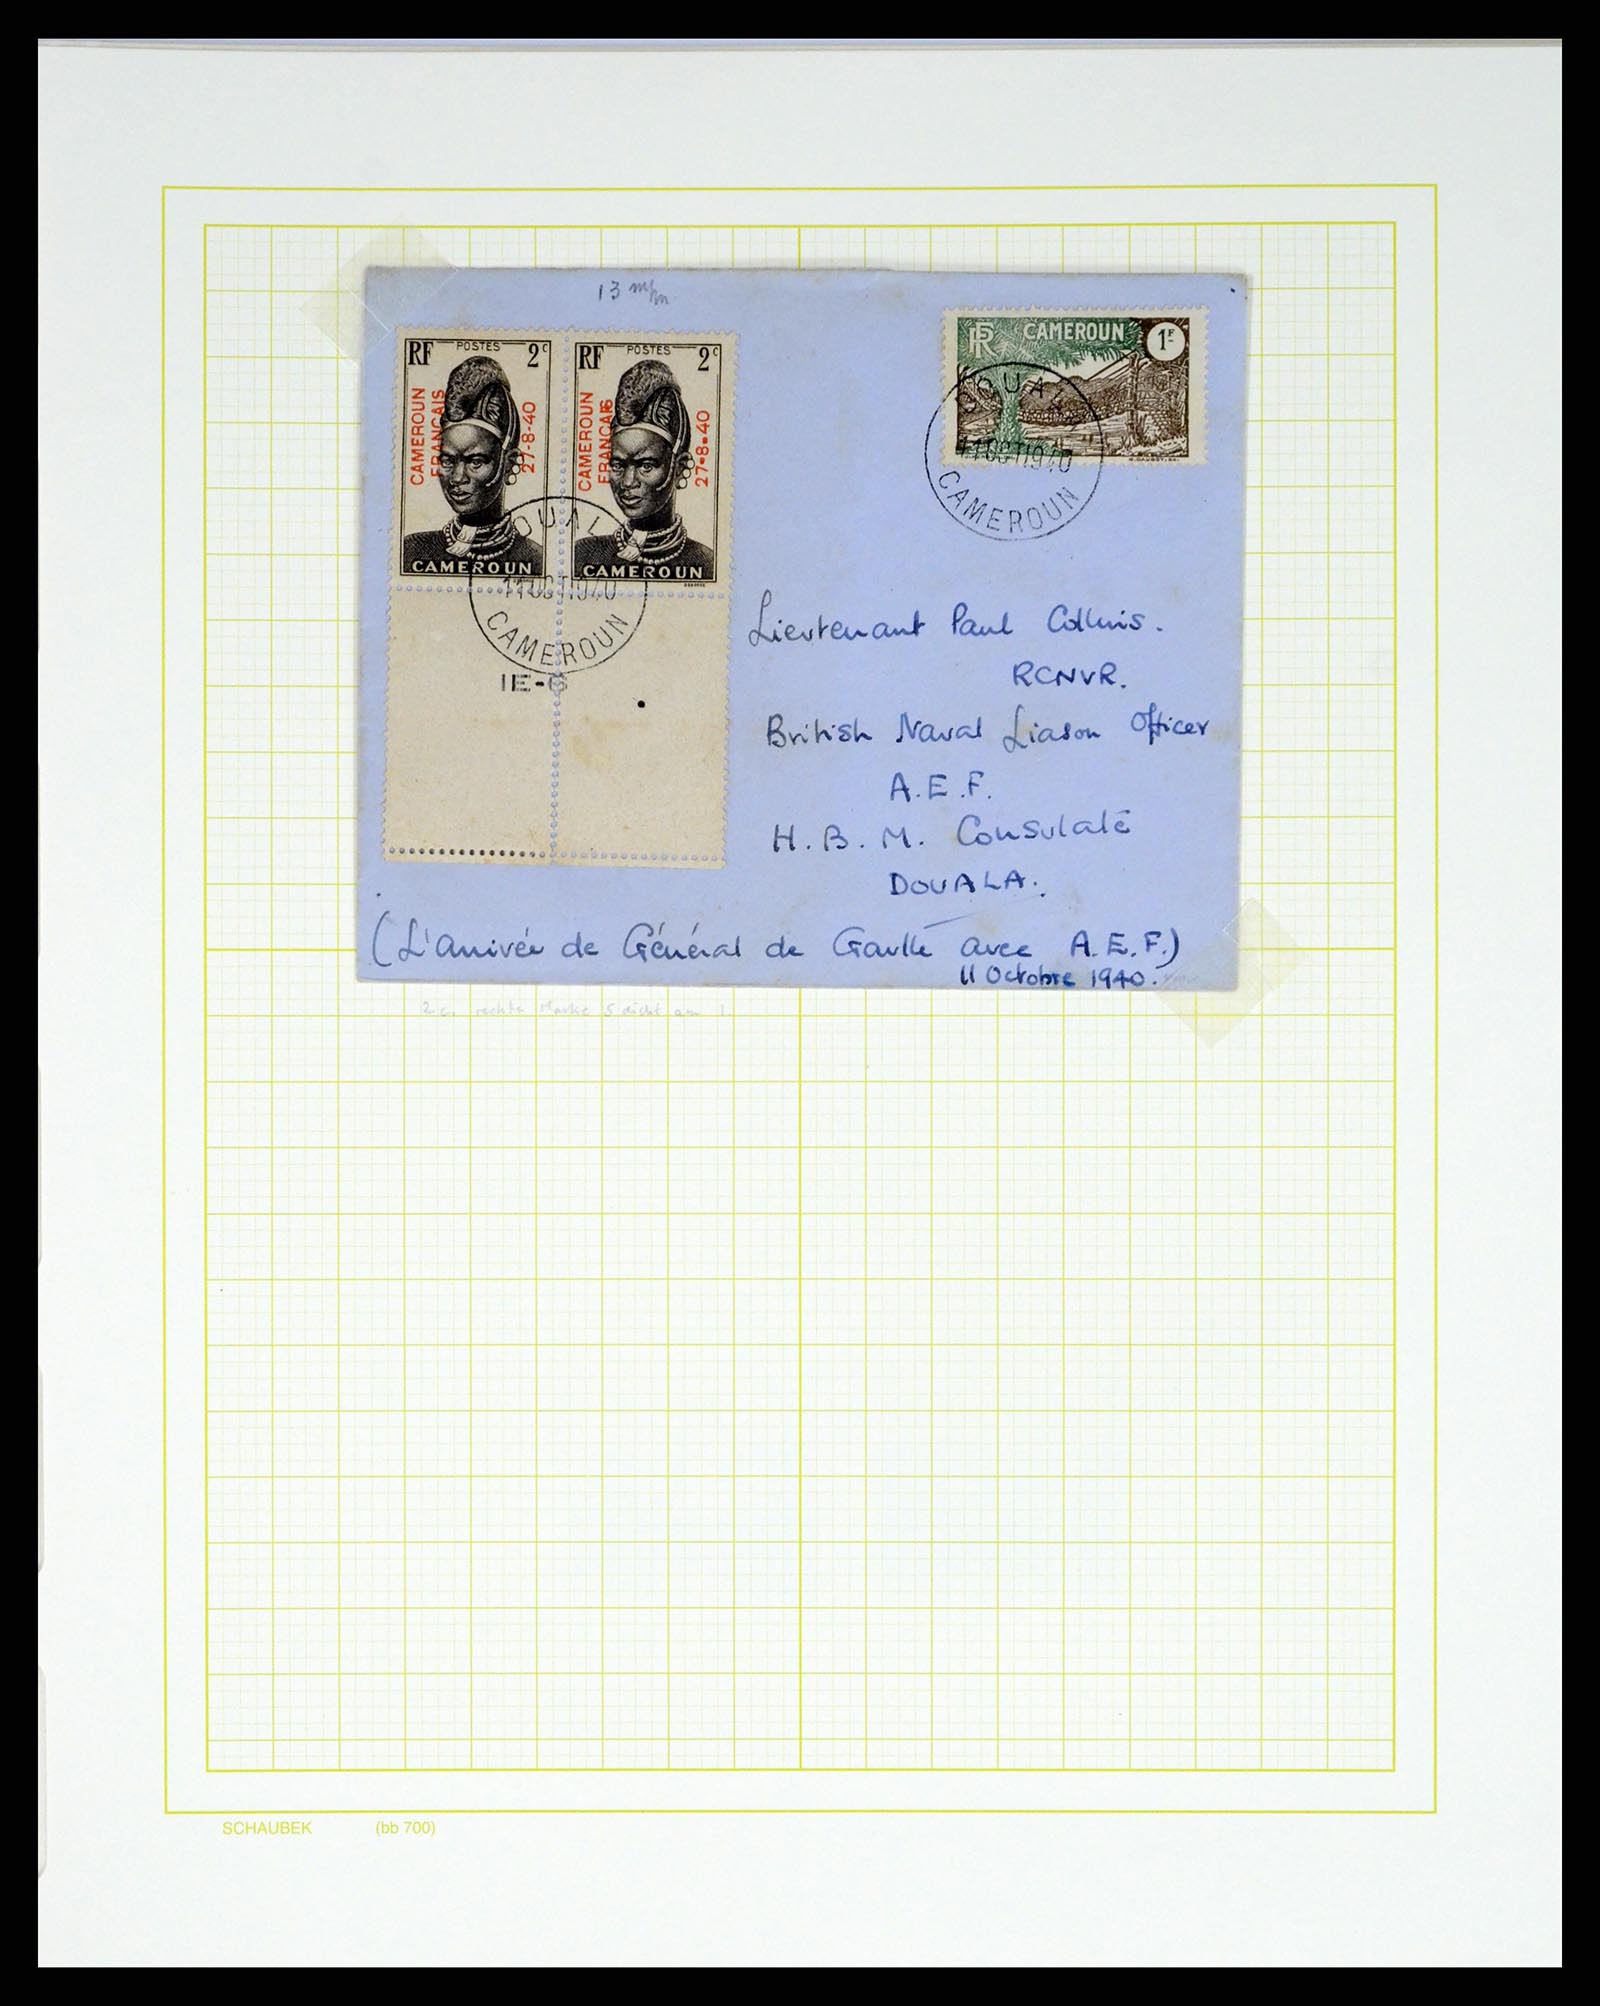 13 m/m
RF POSTES 2c
CAMEROUN
FRANÇAIS
27-8-40
CAMEROUN
RF POSTES 2c
CAMEROUN
FRANÇAIS
27-8-40
CAMEROUN
DOUALA
11 OCT 1940
CAMEROUN
IE-6
RF CAMEROUN 1F
DOUALA
11 OCT 1940
CAMEROUN
Lieutenant Paul Collins.
RCNVR.
British Naval Liason Officer
A.E.F.
H.B.M. Consulate
DOUALA.
(L'arrivée de Général de Gaulle avec A.E.F.)
11 Octobre 1940.
2 c. rechte Marke S dicht am I
SCHAUBEK (bb 700)